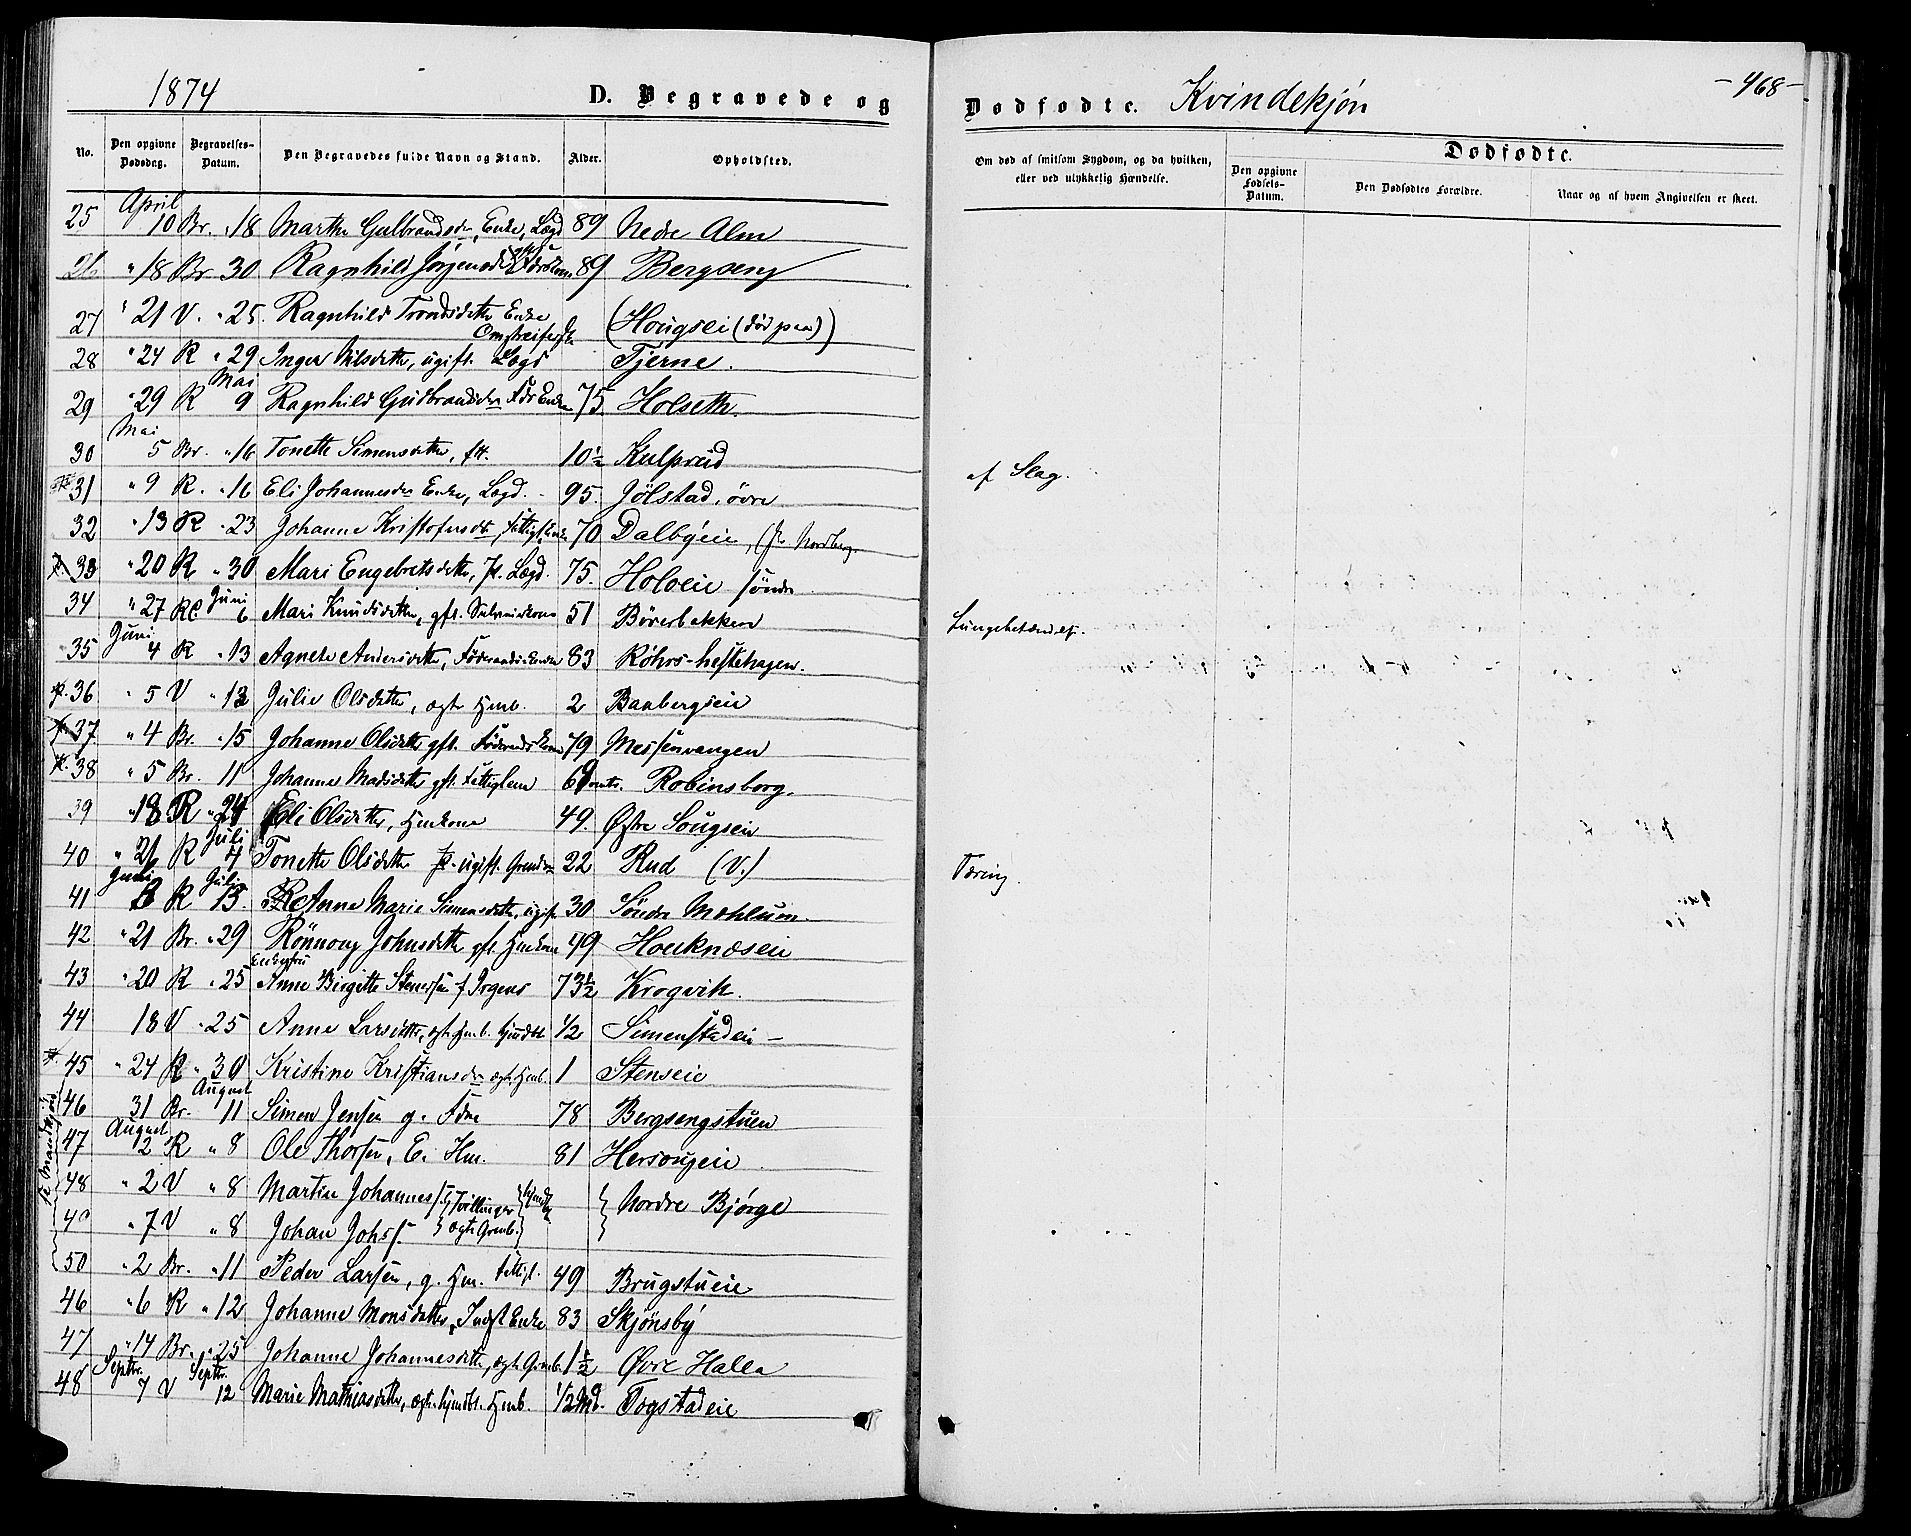 1874
D. Begravede og Dødfødte. Kvindekjøn -468-
No. Den opgivne Dødsdag. Begravelses-Datum. Den Begravedes fulde Navn og Stand. Alder. Opholdsted. Om død af smitsom Sygdom, og da hvilken, eller ved ulykkelig Hændelse. Dødfødte.
Den opgivne Fødsels-Datum. Den Dødfødtes Forældre. Naar og af hvem Angivelsen er skeet.
25 April 10 Br. " 18 Marthe Gulbrandsdr, Enke, Lægd 89 Nedre Alm
26 " 18 Br 30 Ragnhild Jørgensd 89 Bergseng
27 " 21 V. " 25. Ragnhild Trondsdatter Enke Omstreiferske (Hougsei (død paa))
28 " 24 R " 29 Inger Nilsdatter, ugift. Lægd Tjerne.
29 " 29 R Mai 9 Ragnhild Gudbrandsdr Fdr Enke 75 Holseth.
30 Mai 5 Br. " 16 Tonette Simensdatter, ftt. 10½ Kulprud af Slag.
31 " 9 R. " 16 Eli Johannesdr Enke, Lægd. 95. Jölstad, övre
32 " 13 R " 23 Johanne Kristofersdtr, Fattigl. Enke 70 Dalbyeie, (fr. Nordberg.
33 " 20 R " 30 Mari Engebretsdatter, Lægd. 75. Holoeie söndre
34 " 27 R Juni 6 Mari Knudsdatter, gft. Selveierkone 51 Böverbakken Lungebetændelse.
35 Juni 4 R " 13 Agnete Andersdatter, Föderaads Enke 83 Röhrs-hestehagen.
36 " 5 V " 13 Julie Olsdatter, ægte Hmb. 2 Baabergseie
37 " 4 Br. " 15 Johanne Olsdatter gft. Föderaadskone 79 Messenvangen
38 " 5 Br. 11 Johanne Madsdatter gft. Fattiglem 69 Robinsborg.
39 " 18 R " 24 Eli Olsdatter, Hmkone 49. Østre Sougseie
40 " 26 R Juli 4 Tonette Olsdatter ugift. 22 Rud (V.) Tæring.
41 R Juli 13. Anne Marie Simensdatter, ugift 30 Söndre Mæhlum
42 " 21 Br. " 29 Rönnoug Johnsdatter gft. Hmkone 49 Houknæseie
43 " 20 R " 25 Enkefru Anne Birgitte Stenersen f. Irgens 73½ Krogvik.
44 18 V " 25 Anne Larsdatter, ægte Hmb. hjmdbt ½ Simenstadeie
45 " 24 R " 30 Kristine Kristiansdr ægte Hmb. 1 Stenseie
46 31 Br. August 11 Simen Jensen g. 78 Bergsengstuen
47 August 2 R " 8 Ole Thorsen, E. Hm. 81 Hersougeie
48 " 2 V " 8 Martin Johannes Tvillinger Nordre Bjørge
49 " 7 V " 8 Johan Johs. ægte Grmb.
50 " 2 Br. " 11 Peder Larsen, g. Hm. Fattigl. 49 Brugstueie
46 " 6 R " 12 Johanne Monsdatter, Indst Enke 83 Skjönsby
47 " 14 Br. " 25 Johanne Johannesdatter, ægte Grmb. 1½ Øvre Halla
48 Septbr. 7 V Septbr. 12 Marie Mathiasdatter, ægte hjmdbt. Hmb. ½ Md. Togstadeie